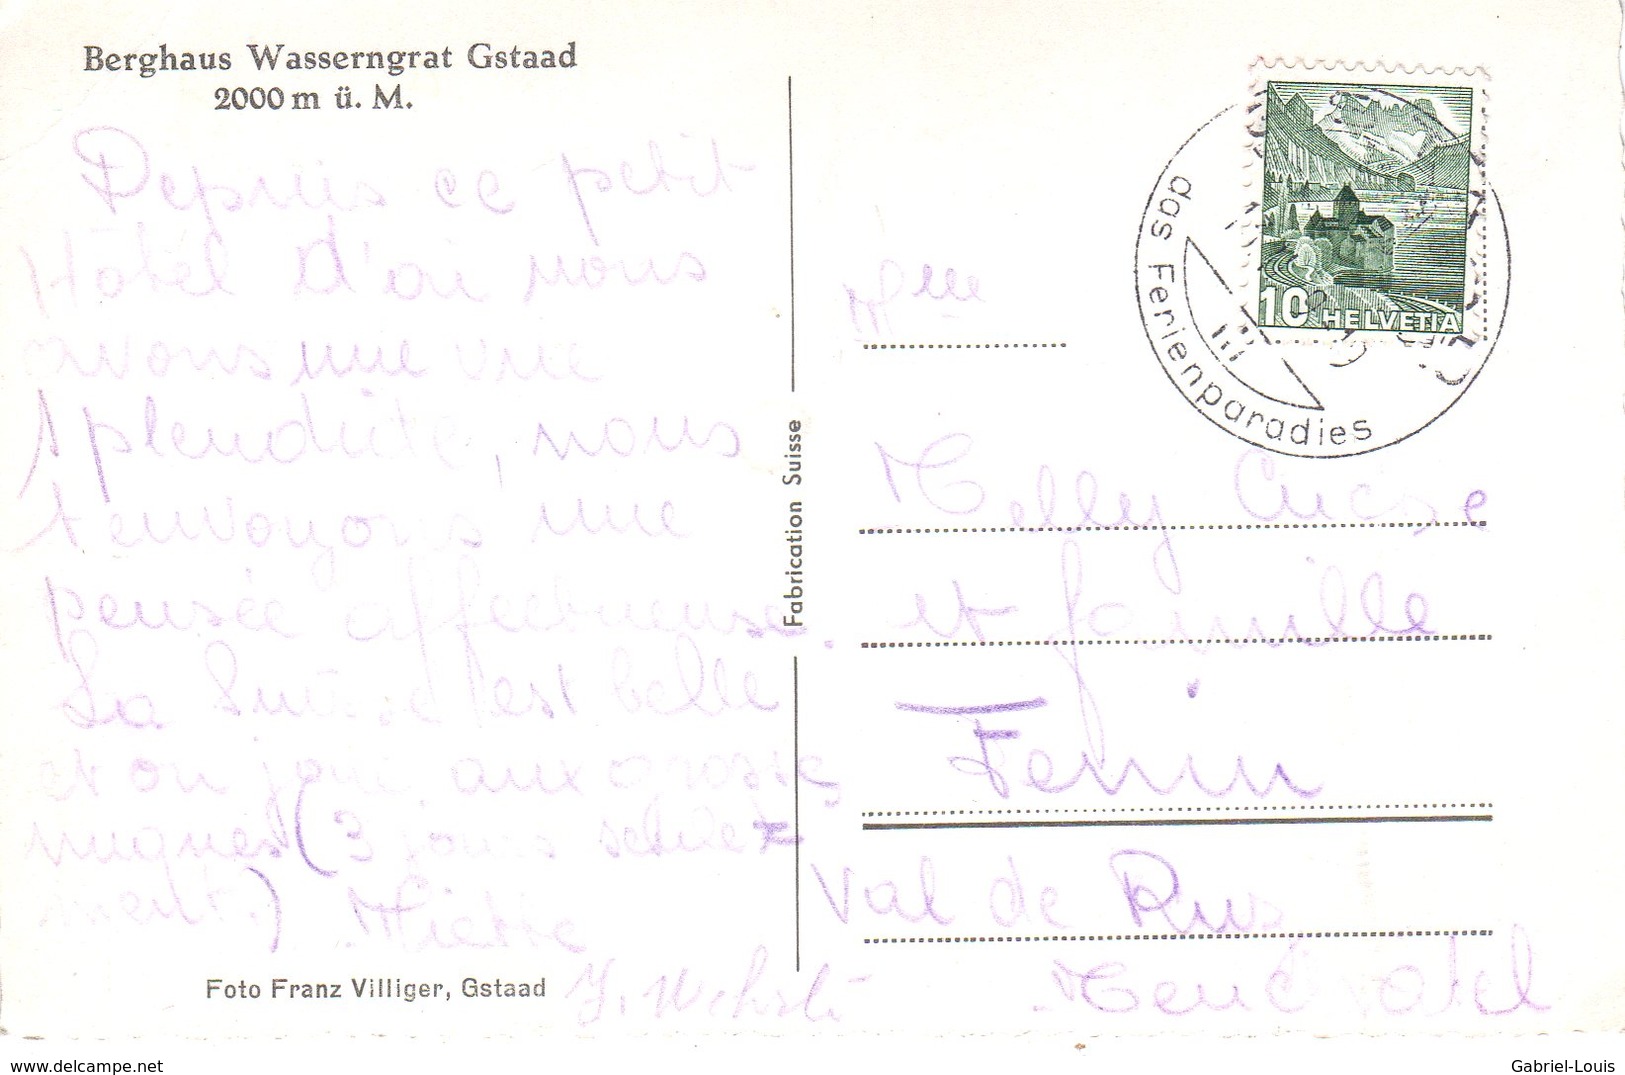 Berghaus Wasserngrat Gstaad
2000 m ü. M.
Depuis ce petit
Hôtel d'ou nous
avons une vue
splendide, nous
t'envoyons une
pensée affectueuse.
La Suisse est belle
et on joui aux grosses
nuques (3 jours seule-
ment.)
Foto Franz Villiger, Gstaad
Fabrication Suisse
das Ferienparadies
10 HELVETIA
Mme
Nelly
et famille
Fenin
Val de Ruz
Neuchatel
http://www.delcampe.net
Gabriel-Louis